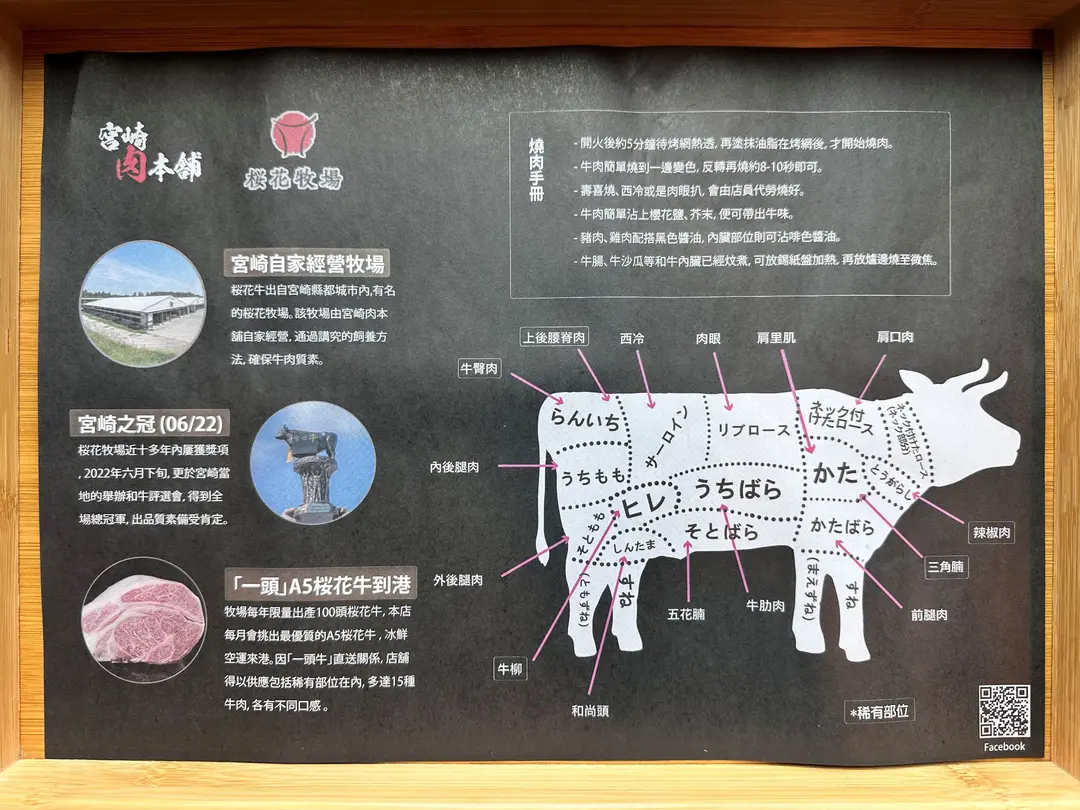 宮崎
肉本舗
桜花牧場
宮崎自家經營牧場
桜花牛出自宮崎縣都城市內,有名
的桜花牧場。該牧場由宮崎肉本
舖自家經營, 通過講究的飼養方
法, 確保牛肉質素。
宮崎之冠 (06/22)
桜花牧場近十多年內屢獲獎項
, 2022年六月下旬, 更於宮崎當
地的舉辦和牛評選會, 得到全
場總冠軍, 出品質素備受肯定。
「一頭」A5桜花牛到港
牧場每年限量出產100頭桜花牛, 本店
每月會挑出最優質的A5桜花牛, 冰鮮
空運來港。因「一頭牛」直送關係, 店舖
得以供應包括稀有部位在內, 多達15種
牛肉, 各有不同口感。
燒肉手冊
- 開火後約5分鐘待烤網熱透, 再塗抹油脂在烤網後, 才開始燒肉。
- 牛肉簡單燒到一邊變色, 反轉再燒約8-10秒即可。
- 壽喜燒、西冷或是肉眼扒, 會由店員代勞燒好。
- 牛肉簡單沾上櫻花鹽、芥末, 便可帶出牛味。
- 豬肉、雞肉配搭黑色醬油, 內臟部位則可沾啡色醬油。
- 牛腸、牛沙瓜等和牛內臟已經炆煮, 可放錫紙盤加熱, 再放爐邊燒至微焦。
上後腰脊肉
西冷
肉眼
肩里肌
肩口肉
牛臀肉
らんいち
サーロイン
リブロース
ネック付
けたロース
ネック付けたロース
(ネック部分)
內後腿肉
うちもも
ヒレ
うちばら
かた
とうがらし
そともも
しんたま
そとばら
かたばら
辣椒肉
外後腿肉
(ともずね)
すね
(まえずね)
すね
三角腩
五花腩
牛肋肉
前腿肉
牛柳
和尚頭
*稀有部位
Facebook